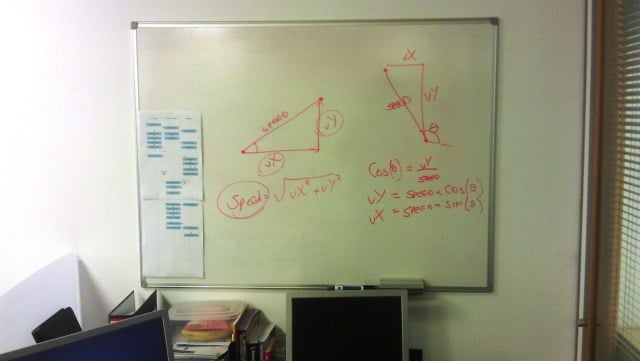 SPEED
vY
vX
Speed = √vX² + vY²
vX
SPEED
vY
θ
Cos(θ) = vY/SPEED
vY = SPEED × COS(θ)
vX = SPEED × SIN(θ)